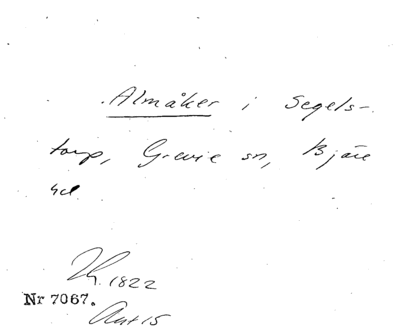 Almåker i Segels-
torp, Grevie sn, Bjäre
hd
Th. 1822
Nr 7067.
Avt 15